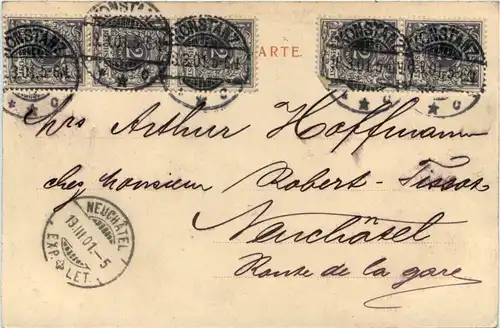 KONSTANZ KONSTANZ KONSTANZ
2 2 2 2
ARTE.
Arthur Hoffmann
chez Monsieur Robert-Tissot
Neuchâtel
Route de la gare
NEUCHÂTEL
13.III.01.-5
EXP. LET.